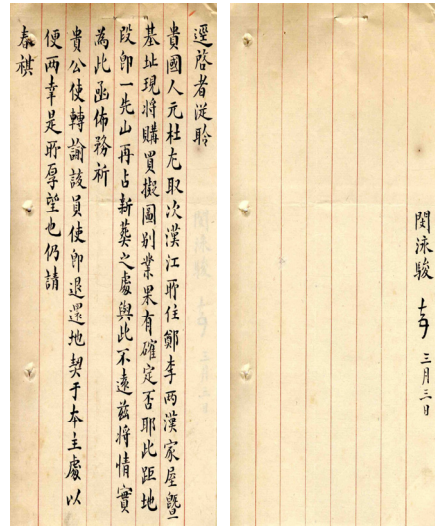 逕啓者從聆
貴國人元杜尨取次漢江所住鄭李兩漢家屋曁
基址現將購買擬圖别業果有確定否耶此距地
段卽一先山再占新葬之處與此不遠兹將情實
為此函佈務祈
貴公使轉諭該員使卽退還地契于本主處以
便兩幸是所厚望也仍請
春祺
閔泳駿 三月三日